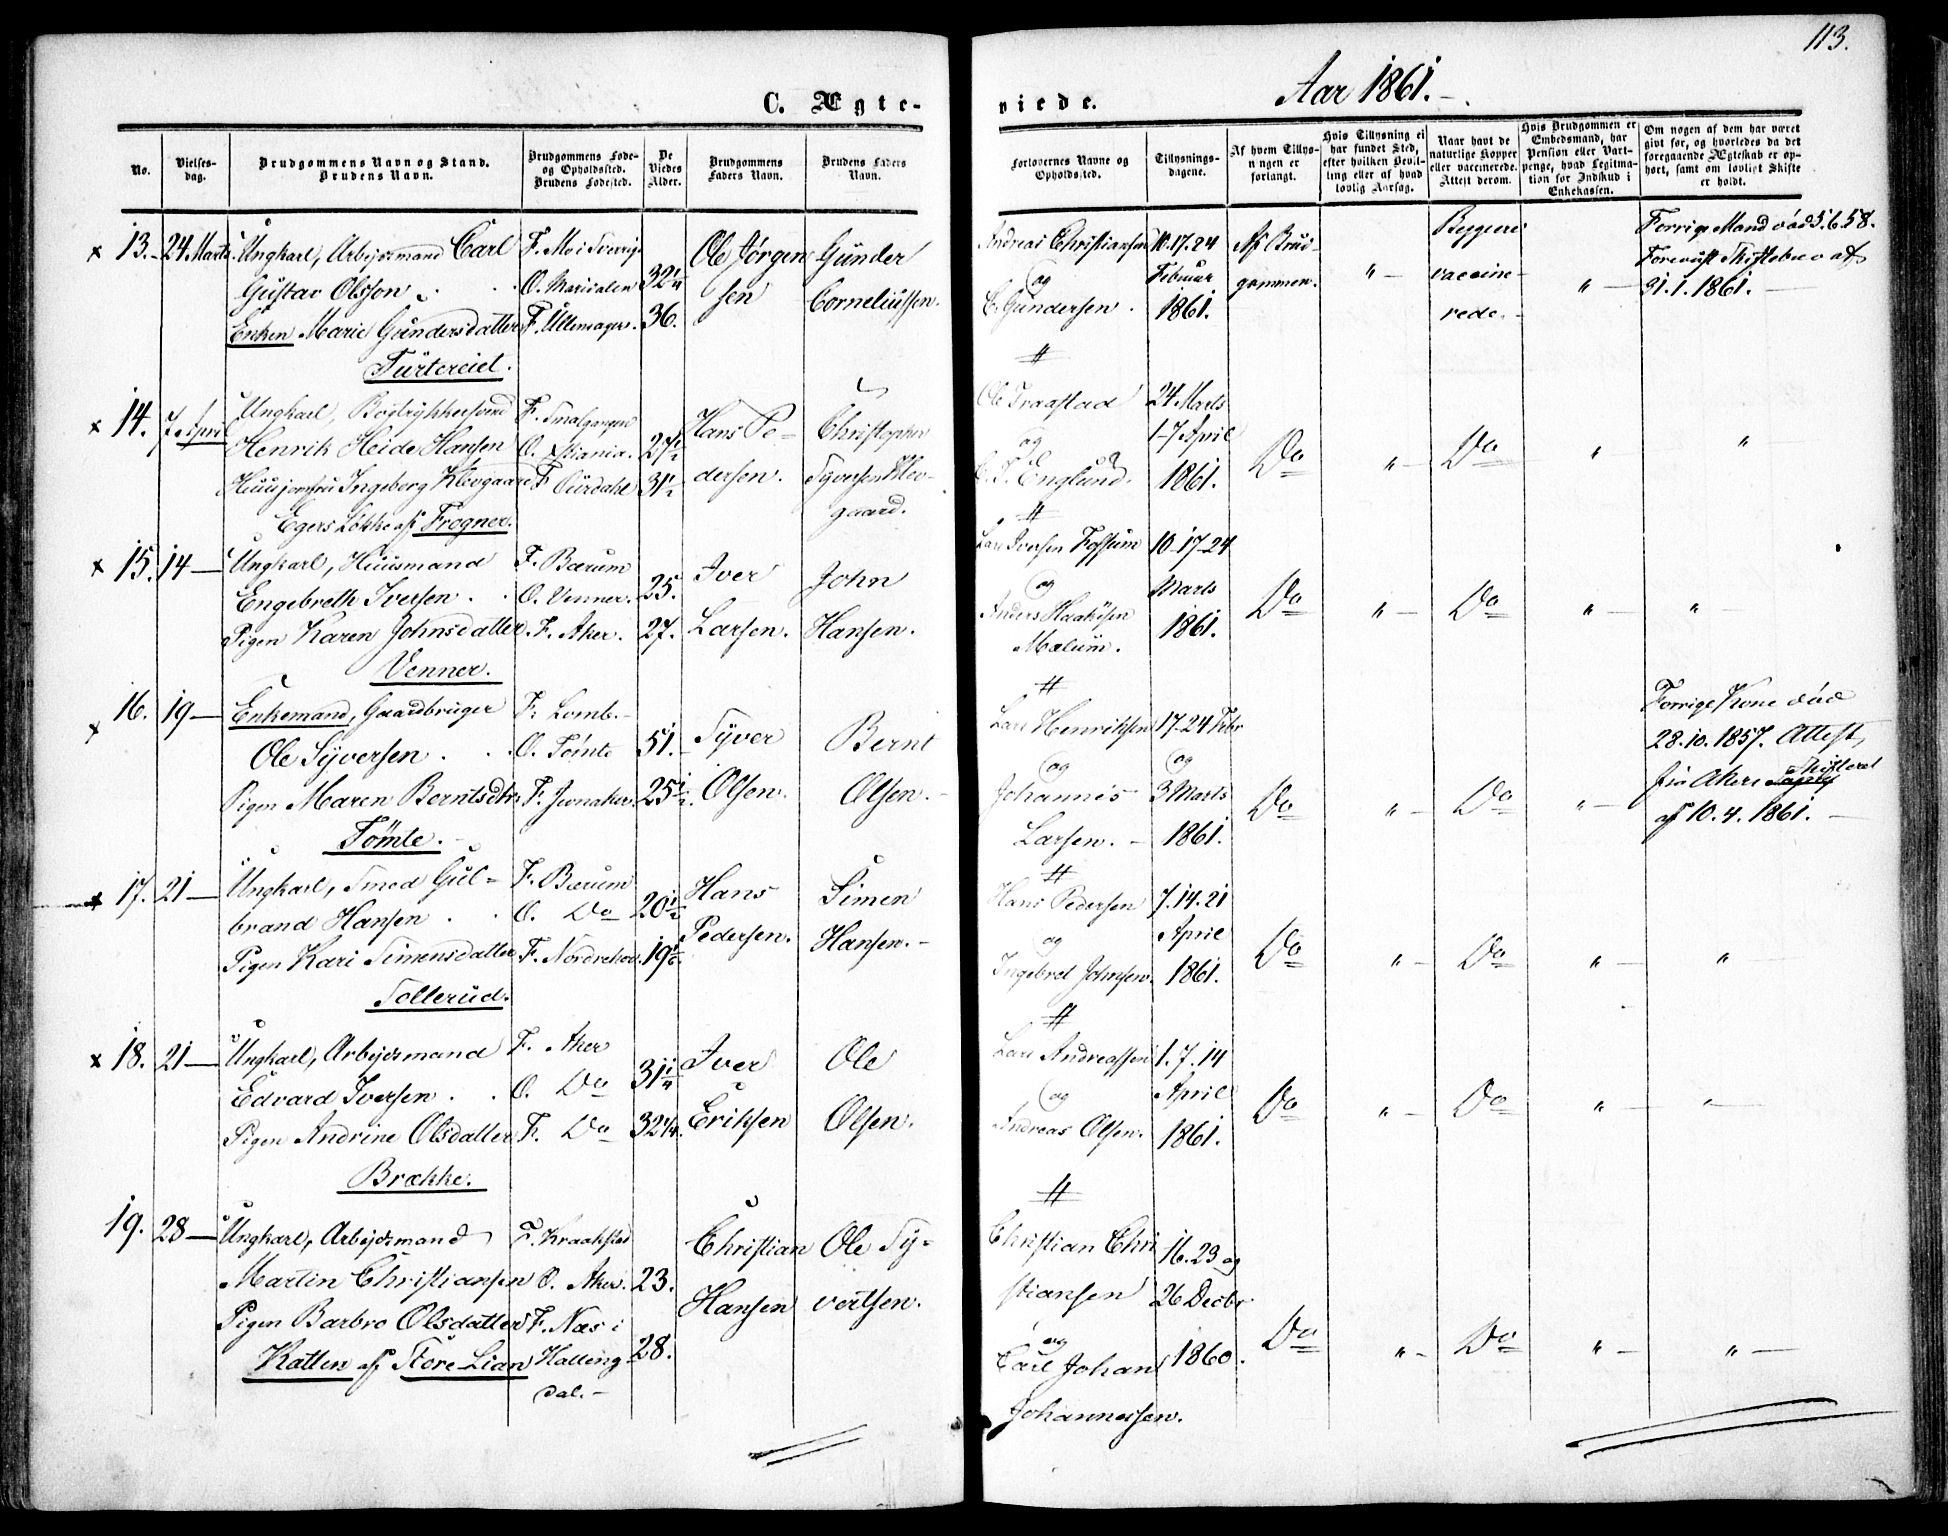 113.
C. Ægte-
viede.
Aar 1861.
No.
Vielses-
dag.
Brudgommens Navn og Stand.
Brudens Navn.
Brudgommens Føde-
og Opholdssted.
Brudens Fødested.
De
Viedes
Alder.
Brudgommens
Faders Navn.
Brudens Faders
Navn.
Forlovernes Navne og
Opholdssted.
Tillysnings-
dagene.
Af hvem Tillys-
ningen er
forlangt.
Hvis Tillysning ei
har fundet Sted,
efter hvilken Bevil-
ling eller af hvad
lovlig Aarsag.
Naar havt de
naturlige Kopper
eller vaccinerede.
Attest derom.
Hvis Brudgommen er
Embedsmand, har
Pension eller Vart-
penge, hvad Legitima-
tion for Indskud i
Enkekassen.
Om nogen af dem har været
givt før, og hvorledes da det
foregaaende Ægteskab er op-
hørt, samt om lovligt Skifte
er holdt.
x 13. 24 Marts. Ungkarl, Arbejdsmand Carl
Gustav Olsson
Enken Marie Gundersdatter
Turtereiet.
F. Mo i Sverrig
O. Maridalen
F. Ullensager.
32
36.
Ole Jørgen
sen
Gunder
Corneliussen.
Andreas Christiansen
og
C. Gundersen.
10. 17. 24
Februar
1861.
Af Brud-
gommen.
" —
Beggere
vaccine-
rede.
" —
Forrige Mand død 5.6.58.
Forevist Skiftebrev af
31.1.1861.
x 14. 7 April Ungkarl, Bogtrykkersvend
Henrik Heide Hansen
Huusjomfru Ingeborg Klevgaard
Egers Løkke af Frogner.
F. Smalgangen
O. Xtiania.
F. Ourdahl
27½
31½
Hans Pe-
dersen.
Christopher
Syversen Klev-
gaard.
Ole Traastad
og
C. F. Englund.
24 Marts
1-7 April
1861.
Do
" —
Do
" —
"
x 15. 14 — Ungkarl, Huusmand
Engebreth Iversen.
Pigen Karen Johnsdatter.
Venner.
F. Bærum
O. Venner.
F. Aker.
25.
27.
Iver
Larsen.
John
Hansen.
Lars Iversen Fossum
og
Anders Haakonsen
Mælum.
10-17-24
Marts
1861.
Do
" —
Do
" —
"
x 16. 19 — Enkemand, Gaardbruger
Ole Syversen
Pigen Maren Berntsdtr.
Tømte.
F. Lomb.
O. Tømte
F. Jevnaker.
51.
25½.
Syver
Olsen.
Bernt
Olsen.
Lars Henriksen
og
Johannes
Larsen.
17-24 Febr
og
3 Marts
1861.
Do
" —
Do
" —
Forrige Kone død
28.10.1857. Attest
fra Akers Skifteret
af 10.4.1861.
x 17. 21 — Ungkarl, Smed Gul-
brand Hansen
Pigen Kari Simensdatter
Tollerud.
F. Bærum
O. Do
F. Norderhov.
20½
19
Hans
Pedersen.
Simen
Hansen.
Hans Pedersen
og
Ingebret Johnsen.
7. 14. 21
April
1861.
Do
" —
Do
" —
"
x 18. 21 — Ungkarl, Arbejdsmand
Edvard Iversen
Pigen Andrine Olsdatter
Brække.
F. Aker
O. Do
F. Do
31
32¼.
Iver
Eriksen
Ole
Olsen.
Lars Andreassen
og
Andreas Olsen.
1. 7. 14
April
1861.
Do
" —
Do
" —
" —
19. 28 — Ungkarl, Arbejdsmand
Martin Christiansen
Pigen Barbro Olsdatter
Katten af Store Lian
F. Kraakstad
O. Aker.
F. Næs i
Halling
dal.
23.
28.
Christian
Hansen
Ole Sy-
vertsen.
Christian Chri
stiansen
og
Carl Johan
Johannessen.
16. 23 og
26 Decbr
1860.
Do
" —
Do
" —
" —